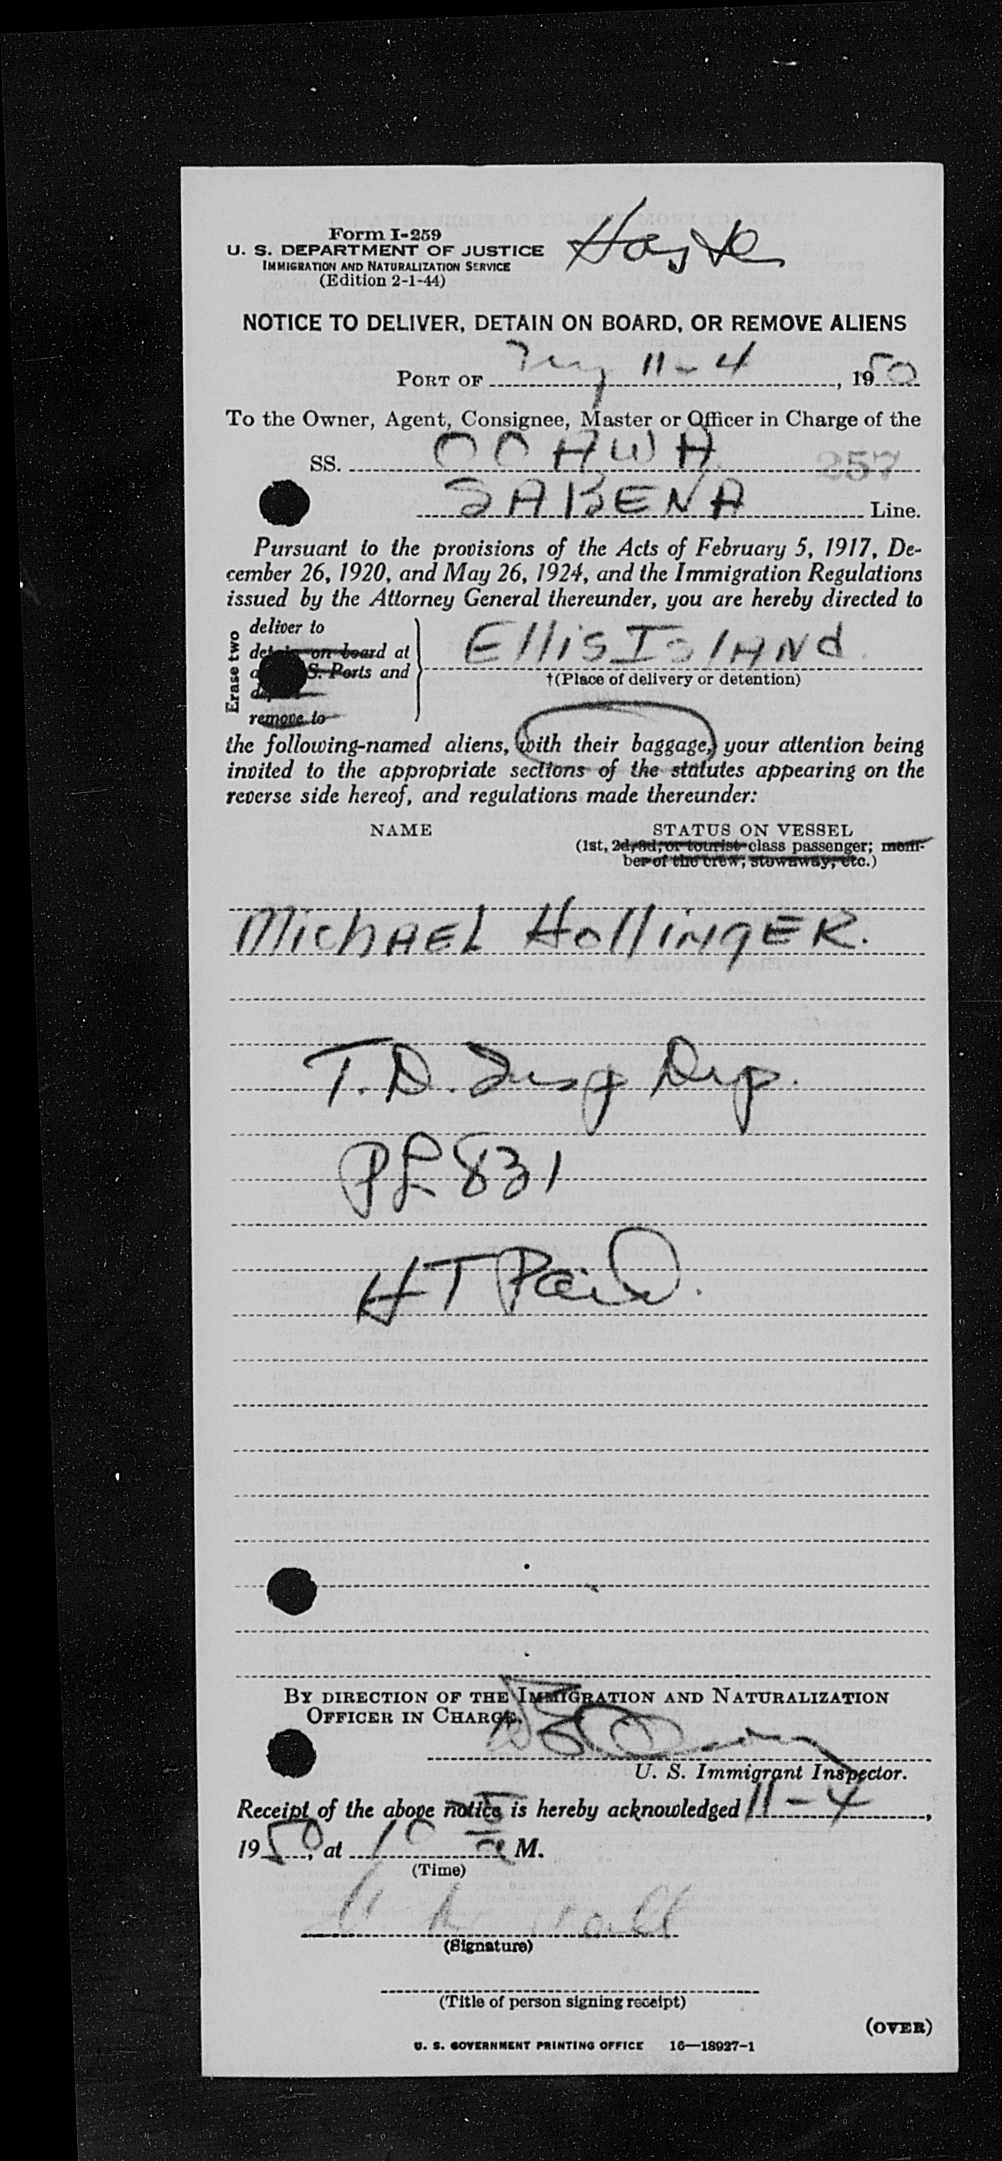 Form I-259
U. S. DEPARTMENT OF JUSTICE
IMMIGRATION AND NATURALIZATION SERVICE
(Edition 2-1-44)
NOTICE TO DELIVER, DETAIN ON BOARD, OR REMOVE ALIENS
PORT OF 11-4, 1950
To the Owner, Agent, Consignee, Master or Officer in Charge of the
SS. OOAWA 257
SABENA Line.
Pursuant to the provisions of the Acts of February 5, 1917, De-
cember 26, 1920, and May 26, 1924, and the Immigration Regulations
issued by the Attorney General thereunder, you are hereby directed to
Erase two
deliver to
detain on board at
S. Ports and
remove to
Ellis Island
†(Place of delivery or detention)
the following-named aliens, with their baggage, your attention being
invited to the appropriate sections of the statutes appearing on the
reverse side hereof, and regulations made thereunder:
NAME STATUS ON VESSEL
(1st, 2d, 3d, or tourist class passenger; mem-
ber of the crew, stowaway, etc.)
Michael Hollinger.
T.D. Susp Dep.
PL 831
HT Paid.
BY DIRECTION OF THE IMMIGRATION AND NATURALIZATION
OFFICER IN CHARGE.
U. S. Immigrant Inspector.
Receipt of the above notice is hereby acknowledged 11-4,
1950, at 10 M.
(Time)
(Signature)
(Title of person signing receipt)
(OVER)
U. S. GOVERNMENT PRINTING OFFICE 16—18927-1